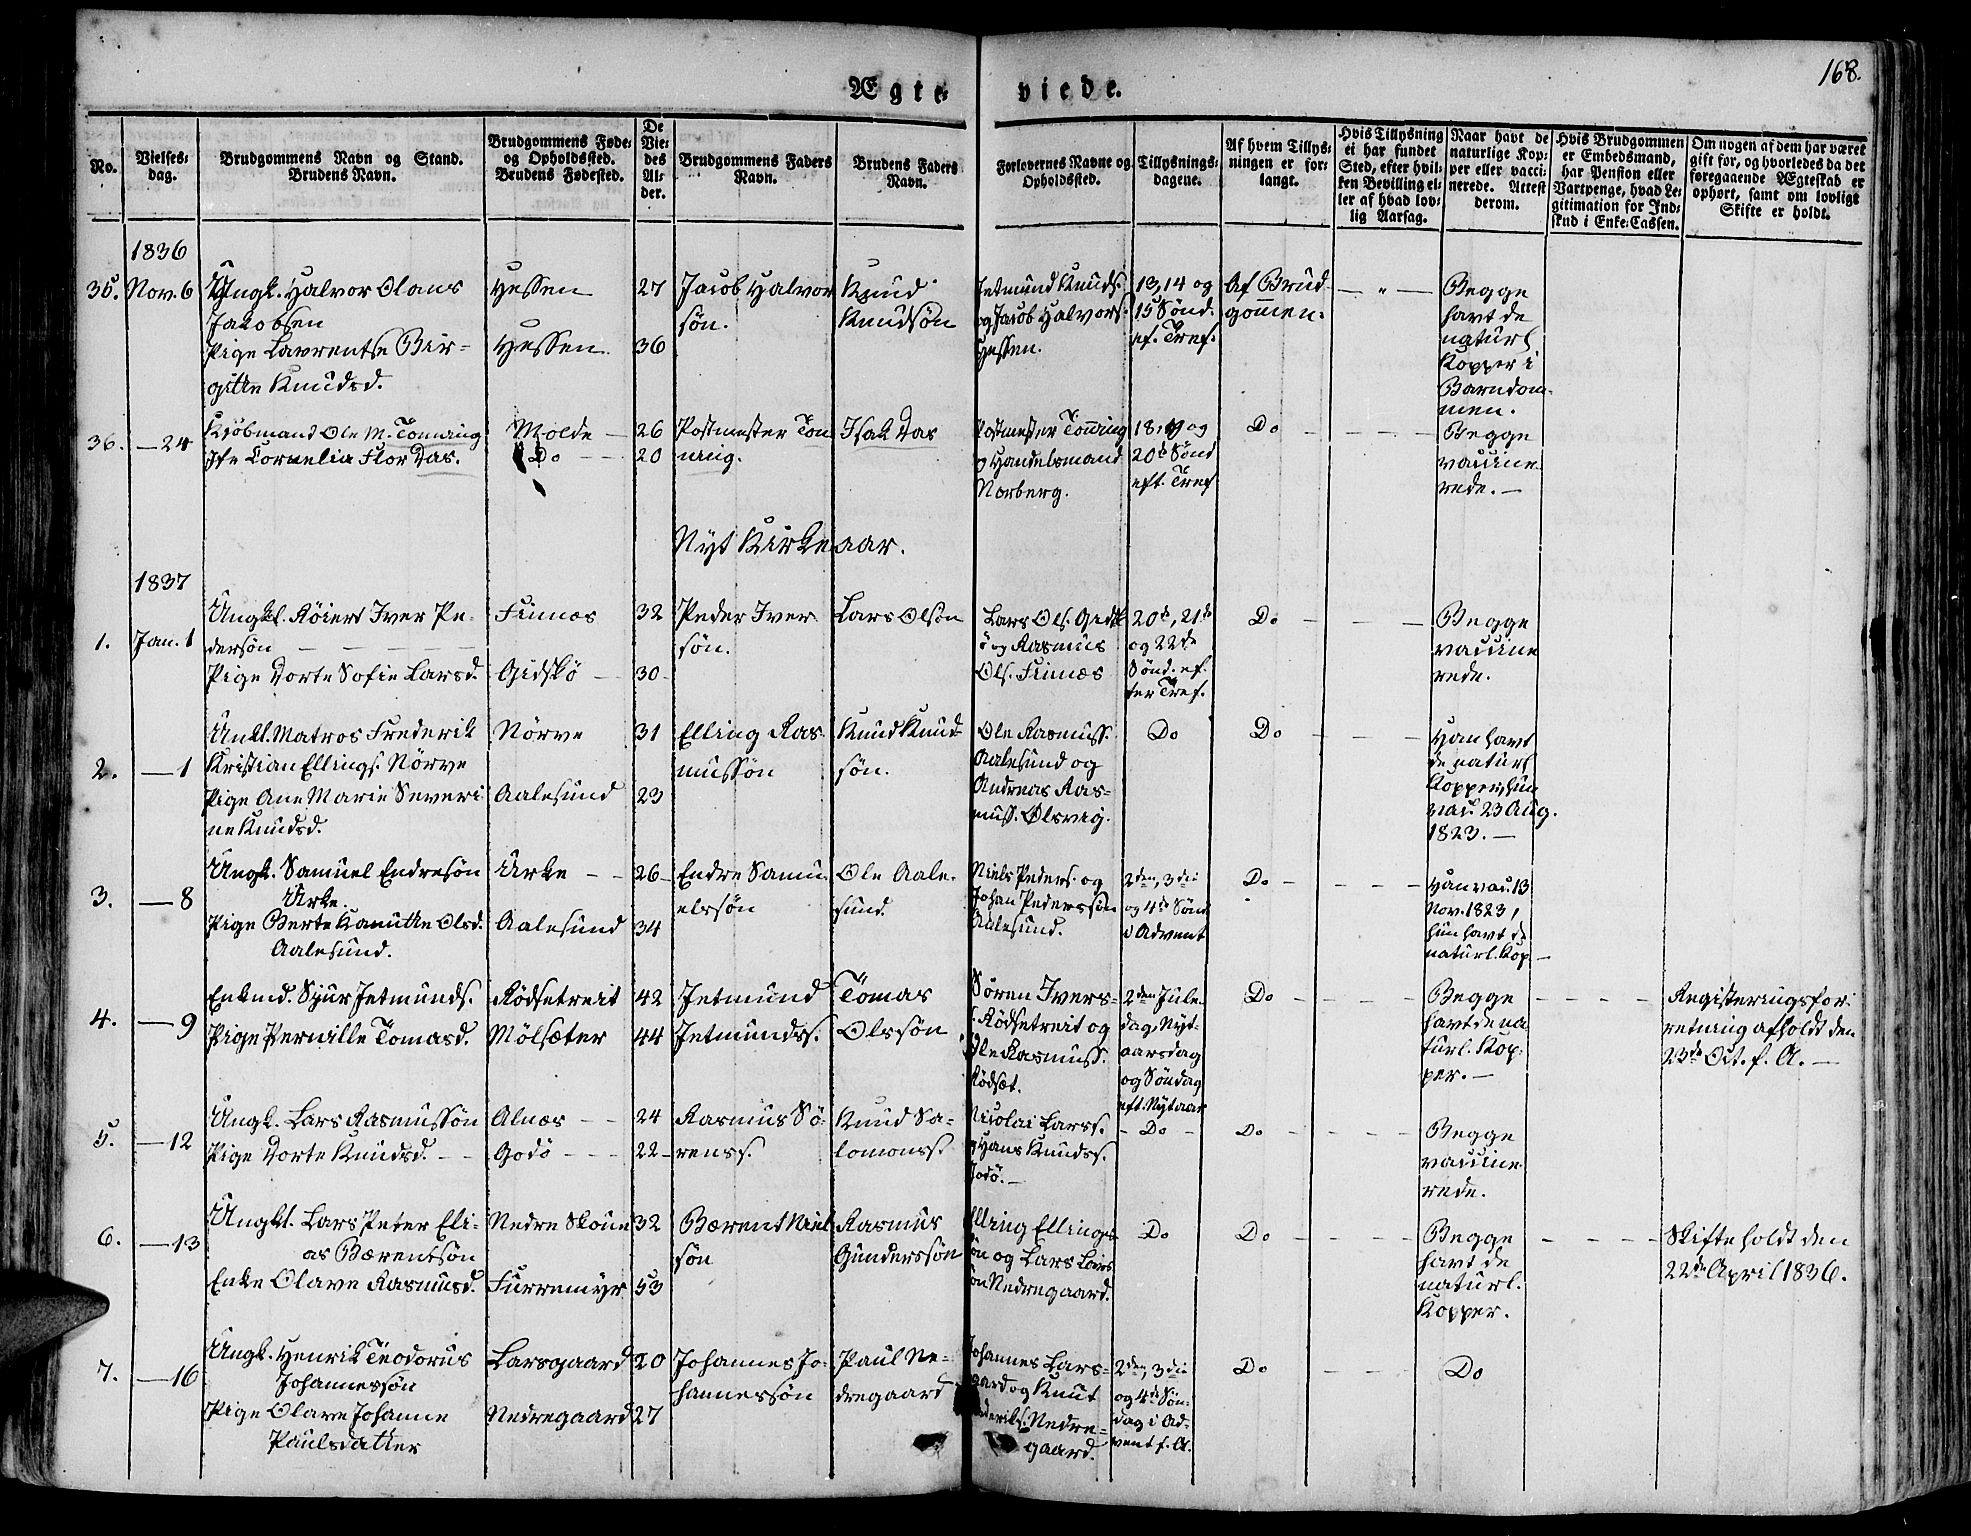 168.
Ægte- viede.
No.
Vielses-
dag.
Brudgommens Navn og Stand.
Brudens Navn.
Brudgommens Føde-
og Opholdssted.
Brudens Fødested.
De
Vie-
des
Al-
der.
Brudgommens Faders
Navn.
Brudens Faders
Navn.
Forlovernes Navne og
Opholdssted.
Tillysnings-
dagene.
Af hvem Tillys-
ningen er for-
langt.
Hvis Tillysning
ei har fundet
Sted, efter hvil-
ken Bevilling el-
ler af hvad lov-
lig Aarsag.
Naar havt de
naturlige Kop-
per eller vacci-
nerede. Attest
derom.
Hvis Brudgommen
er Embedsmand,
har Pension eller
Vartpenge, hvad Le-
gitimation for Ind-
skud i Enke-Cassen.
Om nogen af dem har været
gift før, og hvorledes da det
foregaaende Ægteskab er
ophørt, samt om lovligt
Skifte er holdt.
1836
35. Nov. 6
Ungk. Halvor Olaus
Jakobsen
Pige Lavrentse Bir-
gitte Knudsd.
Hessen
Hessen
27
36
Jacob Halvor
søn.
Knud
Knudsøn
Jetmund Knuds.
og Jacob Halvors.
Hessen.
13, 14 og
15 Sønd.
ef. Tref.
Af Brud-
gommen.
Begge
havt de
naturl
Kopper i
Barndom-
men.
36. — 24
Kiøbmand Ole M. Tønning
Cornelia Flor Das.
Molde
Do
26
20
Postmester Tøn
ning.
Isak Das
Postmester Tønning
og Handelsmand
Norberg.
18, 19 og
20de Sønd
eft. Tref
Do
Begge
vaccine
rede. —
Nyt Kirkeaar.
1837
1. Jan. 1
Ungkl. Røiert Iver Pe-
dersøn
Pige Dorte Sofie Larsd.
Finnæs
Gidskö
32
30
Peder Iver
søn.
Lars Olsøn
Lars Ols. Gidsk
ö og Rasmus
Ols. Finnæs
20de, 21de
og 22de
Sønd. ef-
ter Tref.
Do
Begge
vaccine
rede.
2. — 1
Unkl. Matros Frederik
Kristian Ellings. Nörve
Pige Ane Marie Severi
ne Knudsd.
Nörve
Aalesund
31
23
Elling Ras-
mussøn
Knud Knud-
søn.
Ole Rasmuss.
Aalesund og
Andreas Ras-
muss. Ølsvig.
Do
Do
Han havt
de naturl
Kopper, hun
vac. 23 Aug.
1823. —
3. — 8
Ungk. Samuel Endresøn
Urke.
Pige Berte Kanutte Olsd.
Aalesund.
Urke
Aalesund
26
34
Endre Samu
elssøn
Ole Aale-
sund.
Niels Peders. og
Johan Pederssøn
Aalesund.
2den, 3die
og 4de Sønd
i Advent
Do
Han vac. 13
Nov. 1823,
hun havt de
naturl. Kop —
4. — 9
Enkmd. Sjur Jetmunds.
Pige Pernille Tomasd.
Rödsetreit
Mölsæter
42
44
Jetmund
Jetmundss.
Tomas
Olssøn
Søren Ivers-
s. Rödsetreit og
Ole Rasmuss.
Rödset.
2den Jule
dag, Nyt-
aarsdag
og Søndag
eft. Nytaar
Do
Begge
havt de na
turl. Kop-
per. —
Registeringsfor
retning afholdt den
23de Oct. f. A. —
5. — 12
Ungk. Lars Rasmussøn
Pige Dorte Knudsd.
Alnæs
Godö
24
22
Rasmus Sø-
renss.
Knud Sa-
lomonss.
Nicolai Larss.
og Hans Knudss.
Godö. —
Do
Do
Begge
vaccine
rede.
6. — 13
Ungkl. Lars Peter Eli-
as Bærentsøn
Enke Olave Rasmusd.
Nedre Skoue
Furremyr
32
53
Bærent Niel
søn
Rasmus
Gunderssøn
Elling Ellings
søn og Lars Lars
søn Nedregaard.
Do
Do
Begge
havt de
naturl.
Kopper.
Skifte holdt den
22de April 1836.
7. — 16
Ungk. Henrik Teodorus
Johannessøn
Pige Olave Johanne
Paulsdatter
Larsgaard
Nedregaard
20
27
Johannes Jo-
hannessøn
Paul Ne-
dregaard
Johannes Lars-
gaard og Knut
Frederiks. Nedre-
gaard.
2den, 3die
og 4de Søn-
dag i Ad-
vent f. A.
Do
Do